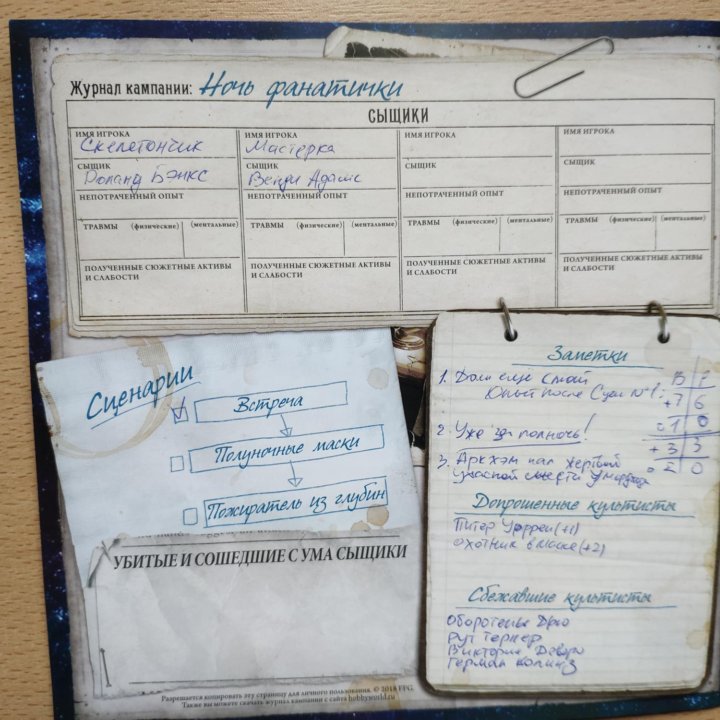 Журнал кампании: Ночь фанатички
СЫЩИКИ
ИМЯ ИГРОКА
Скелетончик
СЫЩИК
Роланд Бэнкс
НЕПОТРАЧЕННЫЙ ОПЫТ
ТРАВМЫ (физические) (ментальные)
ПОЛУЧЕННЫЕ СЮЖЕТНЫЕ АКТИВЫ
И СЛАБОСТИ
ИМЯ ИГРОКА
Мастерка
СЫЩИК
Венди Адамс
НЕПОТРАЧЕННЫЙ ОПЫТ
ТРАВМЫ (физические) (ментальные)
ПОЛУЧЕННЫЕ СЮЖЕТНЫЕ АКТИВЫ
И СЛАБОСТИ
ИМЯ ИГРОКА
СЫЩИК
НЕПОТРАЧЕННЫЙ ОПЫТ
ТРАВМЫ (физические) (ментальные)
ПОЛУЧЕННЫЕ СЮЖЕТНЫЕ АКТИВЫ
И СЛАБОСТИ
ИМЯ ИГРОКА
СЫЩИК
НЕПОТРАЧЕННЫЙ ОПЫТ
ТРАВМЫ (физические) (ментальные)
ПОЛУЧЕННЫЕ СЮЖЕТНЫЕ АКТИВЫ
И СЛАБОСТИ
Сценарии
Встреча
Полуночные маски
Пожиратель из глубин
УБИТЫЕ И СОШЕДШИЕ С УМА СЫЩИКИ
Разрешается копировать эту страницу для личного пользования. © 2018 FFG.
Также вы можете скачать журнал кампании с сайта hobbyworld.ru
Заметки
1. Дом ещё стоит
Опыт после Сцен №1: +7 6
2. Уже за полночь!
+3 3
3. Аркхэм пал жертвой
ужасной смерти
Допрошенные культисты
Питер Уоррен (+1)
Охотник в маске (+2)
Сбежавшие культисты
Оборотень Дрю
Рут Тернер
Виктория Деверо
Герман Коллинз